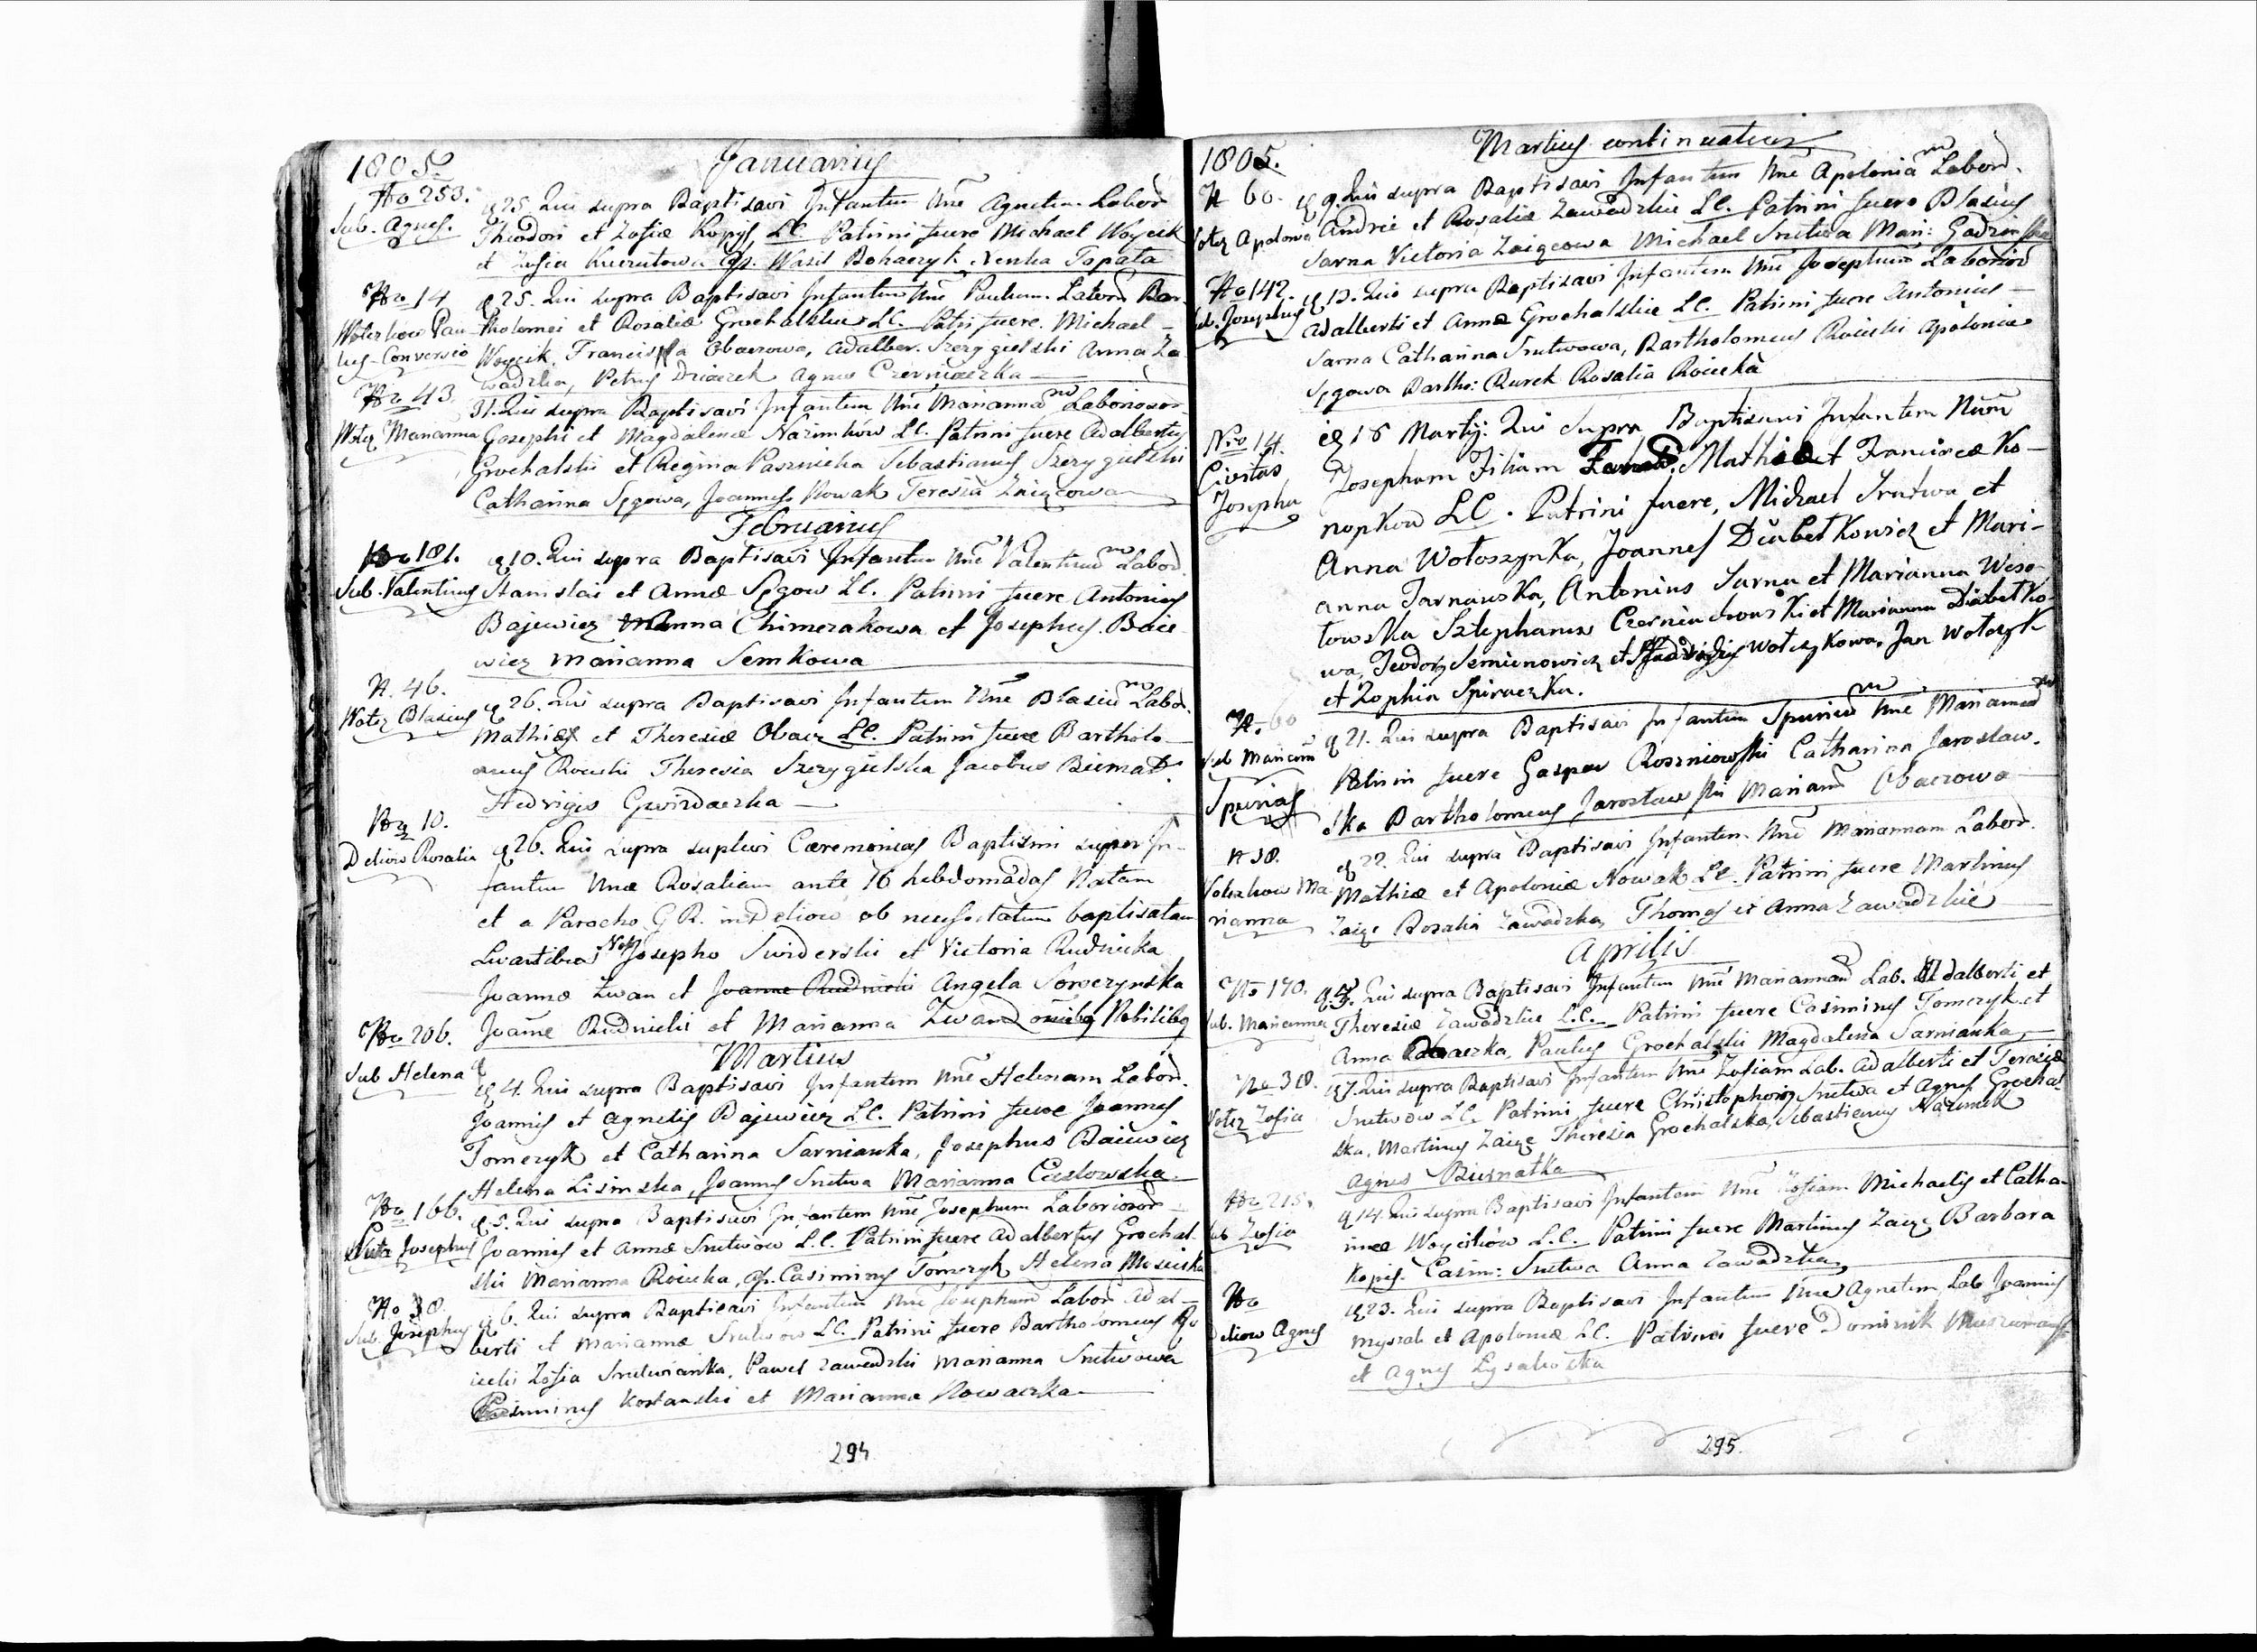 1805.
Januarius
No 253.
Sub. Agnes.
q 25. Qui supra Baptisavi Infantem Nne Agnetem Labor
Theodori et Zofiæ Kopyś LC. Patrini fuere Michael Woycik
et Zofia as. Wasil Bohaczyk Nenka Topata
No 14
Wolczkow Pau
lus Conversio
q 25. Qui supra Baptisavi Infantem Nne Paulum Labor Bar
tholomei et Rosaliæ Grochalskie LC. Patri fuere Michael
Woycik, Francisca Obaczowa, Adalber. Szczygielski Anna Za
wadzka, Petrus Dziaczek Agnes Czerniaczka
No 43
Wolcz Marianna
31. Qui supra Baptisavi Infantem Nne Mariannam Laborioso
Josephi et Magdalenæ Nazimków LC. Patrini fuere Adalbertus
Grochalski et Regina Pasznicka Sebastianus Szczygielski
Catharina Sęgowa, Joannes Nowak Teresia Zaięcowa
Februarius
No 181.
Sub. Valentinus
q 10. Qui supra Baptisavi Infantem Nne Valentinum Labor.
Stanislai et Annæ Sęgow LC. Patrini fuere Antonius
Bajewicz Anna Chimczakowa et Josephus Baie
wicz Marianna Semkowa
N. 46.
Wolcz Blasius
q 26. Qui supra Baptisavi Infantem Nne Blasium Labor.
Mathiæ et Theresiæ Obacz LC. Patrini fuere Bartholo
meus Roicki Theresia Szczygielska Jacobus Biernat
Hedvigis Gwizdaczka
No 10.
Deliow Rosalia
q 26. Qui supra suplevi Cæremonias Baptismi super In
fantem Nne Rosaliam ante 16 hebdomadas Natam
et a Parocho G.R. in Deliow ob necessitatem baptisatam
Levantibus Nob Josepho Swiderski et Victoria Rudnicka
Joanne Zwan et Joanne Rudnicki Angela Sowczynska
Joanne Rudnicki et Marianna Zwan omnibus Nobilibus
Martius
No 206.
Sub Helena
q 4. Qui supra Baptisavi Infantem Nne Helenam Labor.
Joannis et Agnetis Bajewicz LC. Patrini fuere Joannes
Tomczyk et Catharina Sarnianka, Josephus Baiewicz
Helena Lisinska, Joannes Srutwa Marianna Cieslowska
No 166.
Josephus
q 5. Qui supra Baptisavi Infantem Nne Josephum Laborioso
Joannis et Annæ Srutwow L.C. Patrini fuere Adalbertus Grochal
ski Marianna Roicka, as. Casimirus Tomczyk Helena Mosciska
No 38.
Sub. Josephus
q 6. Qui supra Baptisavi Infantem Nne Josephum Labor Adal
berti et Mariannæ Srutwow LC. Patrini fuere Bartholomeus Ro
icki Zofia Srutwianka, Pawel Zawadzki Marianna Srutwowa
Casimirus Kostanski et Marianna Nowaczka
294
1805.
Martius continuatur
N 60.
Wolcz Apolonia
q 9. Qui supra Baptisavi Infantem Nne Apoloniam Labor.
Andreæ et Rosaliæ Zawadzkie LC. Patrini fuere Blasius
Sarna Victoria Zaięcowa Michael Srutwa Mari: Gadzinska
No 142.
Sub. Josephus
q 13. Qui supra Baptisavi Infantem Nne Josephum Laborios
Adalberti et Annæ Grochalskie LC. Patrini fuere Antonius
Sarna Catharina Srutwowa, Bartholomeus Roicki Apolonia
Sęgowa Bartho: Burek Rosalia Roicka
Nro 14.
Civitas
Josephu
q 18 Martij: Qui Supra Baptisavi Infantem Num
Josephum Filium Mathiæ et Franciscæ Ko
nopkow LC. Patrini fuere, Michael Srutwa et
Anna Wołoszynka, Joannes Diabetkowicz et Mari
anna Tarnawska, Antonius Sarna et Marianna Weso
łowska Sztephanus Czerniachowski et Marianna Diabetko
wa, Teodorus Semienowicz et Hadvigis Wołczykowa, Jan Wołczyk
et Zophia Spiraczka.
N. 60
Sub Mariann
Spurias
q 21. Qui supra Baptisavi Infantem Spuriam Nne Mariannam
Patrini fuere Gaspar Roszniowski Catharina Jarosław
ska Bartholomeus Jarosławski Mariann Obaczowa
N 38.
Wolczkow Ma
rianna
q 22. Qui supra Baptisavi Infantem Nne Mariannam Labor.
Mathiæ et Apoloniæ Nowak LC. Patrini fuere Martinus
Zaięc Rosalia Zawadzka, Thomas et Anna Zawadzkie
Aprilis
No 170.
Sub. Marianna
q 3. Qui supra Baptisavi Infantem Nne Mariannam Lab. Adalberti et
Theresiæ Zawadzkie L.C. Patrini fuere Casimirus Tomczyk et
Anna Obaczka, Paulus Grochalski Magdalena Sarnianka,
No 318.
Wolcz Zofia
q 7. Qui supra Baptisavi Infantem Nne Zofiam Lab. Adalberti et Teresiæ
Srutwow LC. Patrini fuere Christophorus Srutwa et Agnes Grochal
ska, Martinus Zaięc Theresia Grochalska, Sebastianus Nazimek
Agnes Biernatka
No 215.
Sub Zofia
q 14. Qui supra Baptisavi Infantem Nne Zofiam Michaelis et Catha
rinæ Woycikow L.C. Patrini fuere Martinus Zaięc Barbara
Kopiś. Casim: Srutwa Anna Zawadzka
No
Deliow Agnes
q 23. Qui supra Baptisavi Infantem Nne Agnetem Lab Joannis
Myszak et Apoloniæ LC. Patrini fuere Dominik
et Agnes Lysakoska
295.